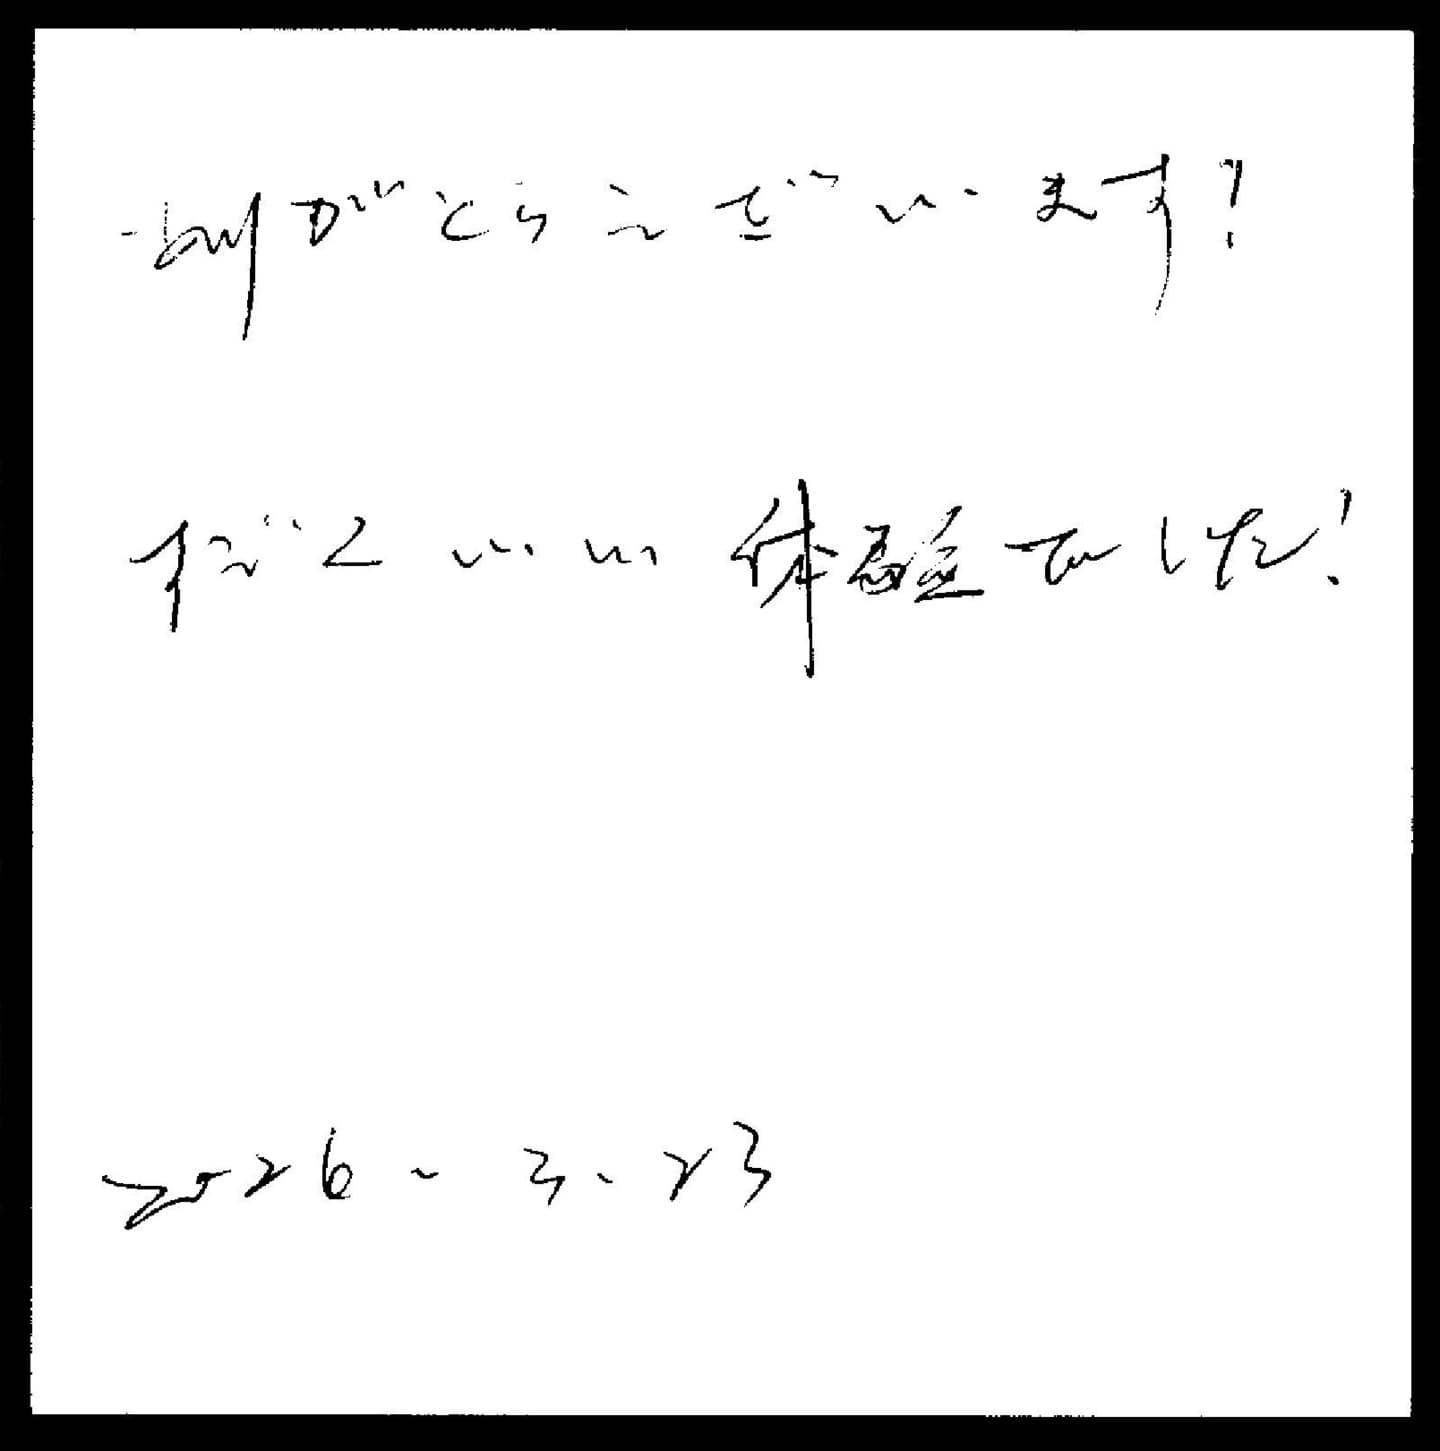 ありがとうございます!
すごくいい体験でした!
2026.3.23